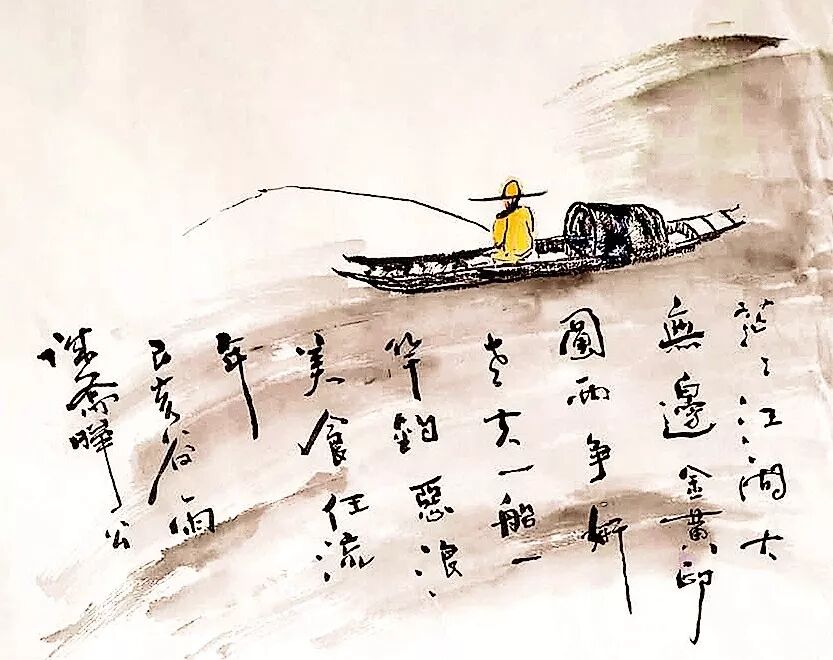 茫々江湖大
無邊金黄印
圖两争妍
老夫一船一
竿釣惡浪
美食任流
年
己亥谷雨
斋曄公